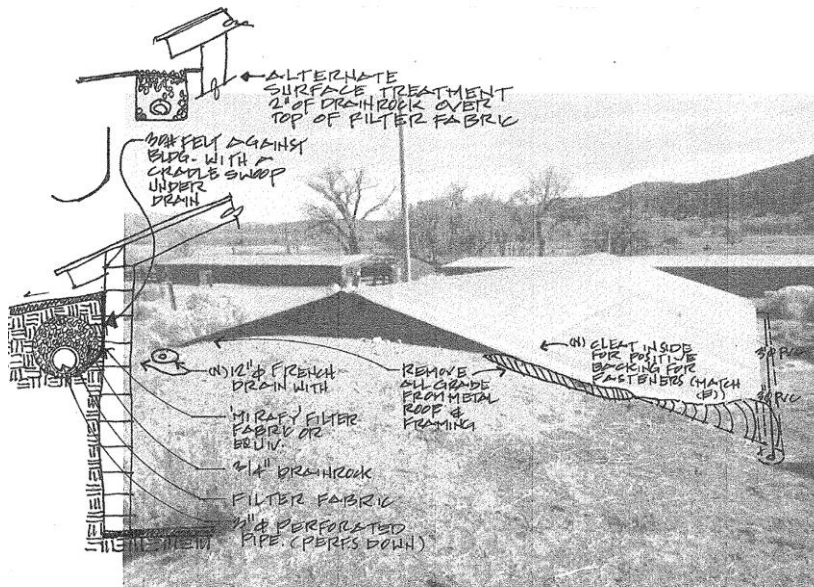 ALTERNATE
SURFACE TREATMENT
2" OF DRAINROCK OVER
TOP OF FILTER FABRIC
30# FELT AGAINST
BLDG. WITH A
CRADLE SWOOP
UNDER
DRAIN
(N) 12" φ FRENCH
DRAIN WITH
'MIRAFY' FILTER
FABRIC OR
EQUIV.
3/4" DRAINROCK
FILTER FABRIC
3" φ PERFORATED
PIPE. (PERFS DOWN)
REMOVE
ALL GRADE
FROM METAL
ROOF &
FRAMING
(N) CLEAT INSIDE
FOR POSITIVE
BACKING FOR
FASTENERS (MATCH
(E))